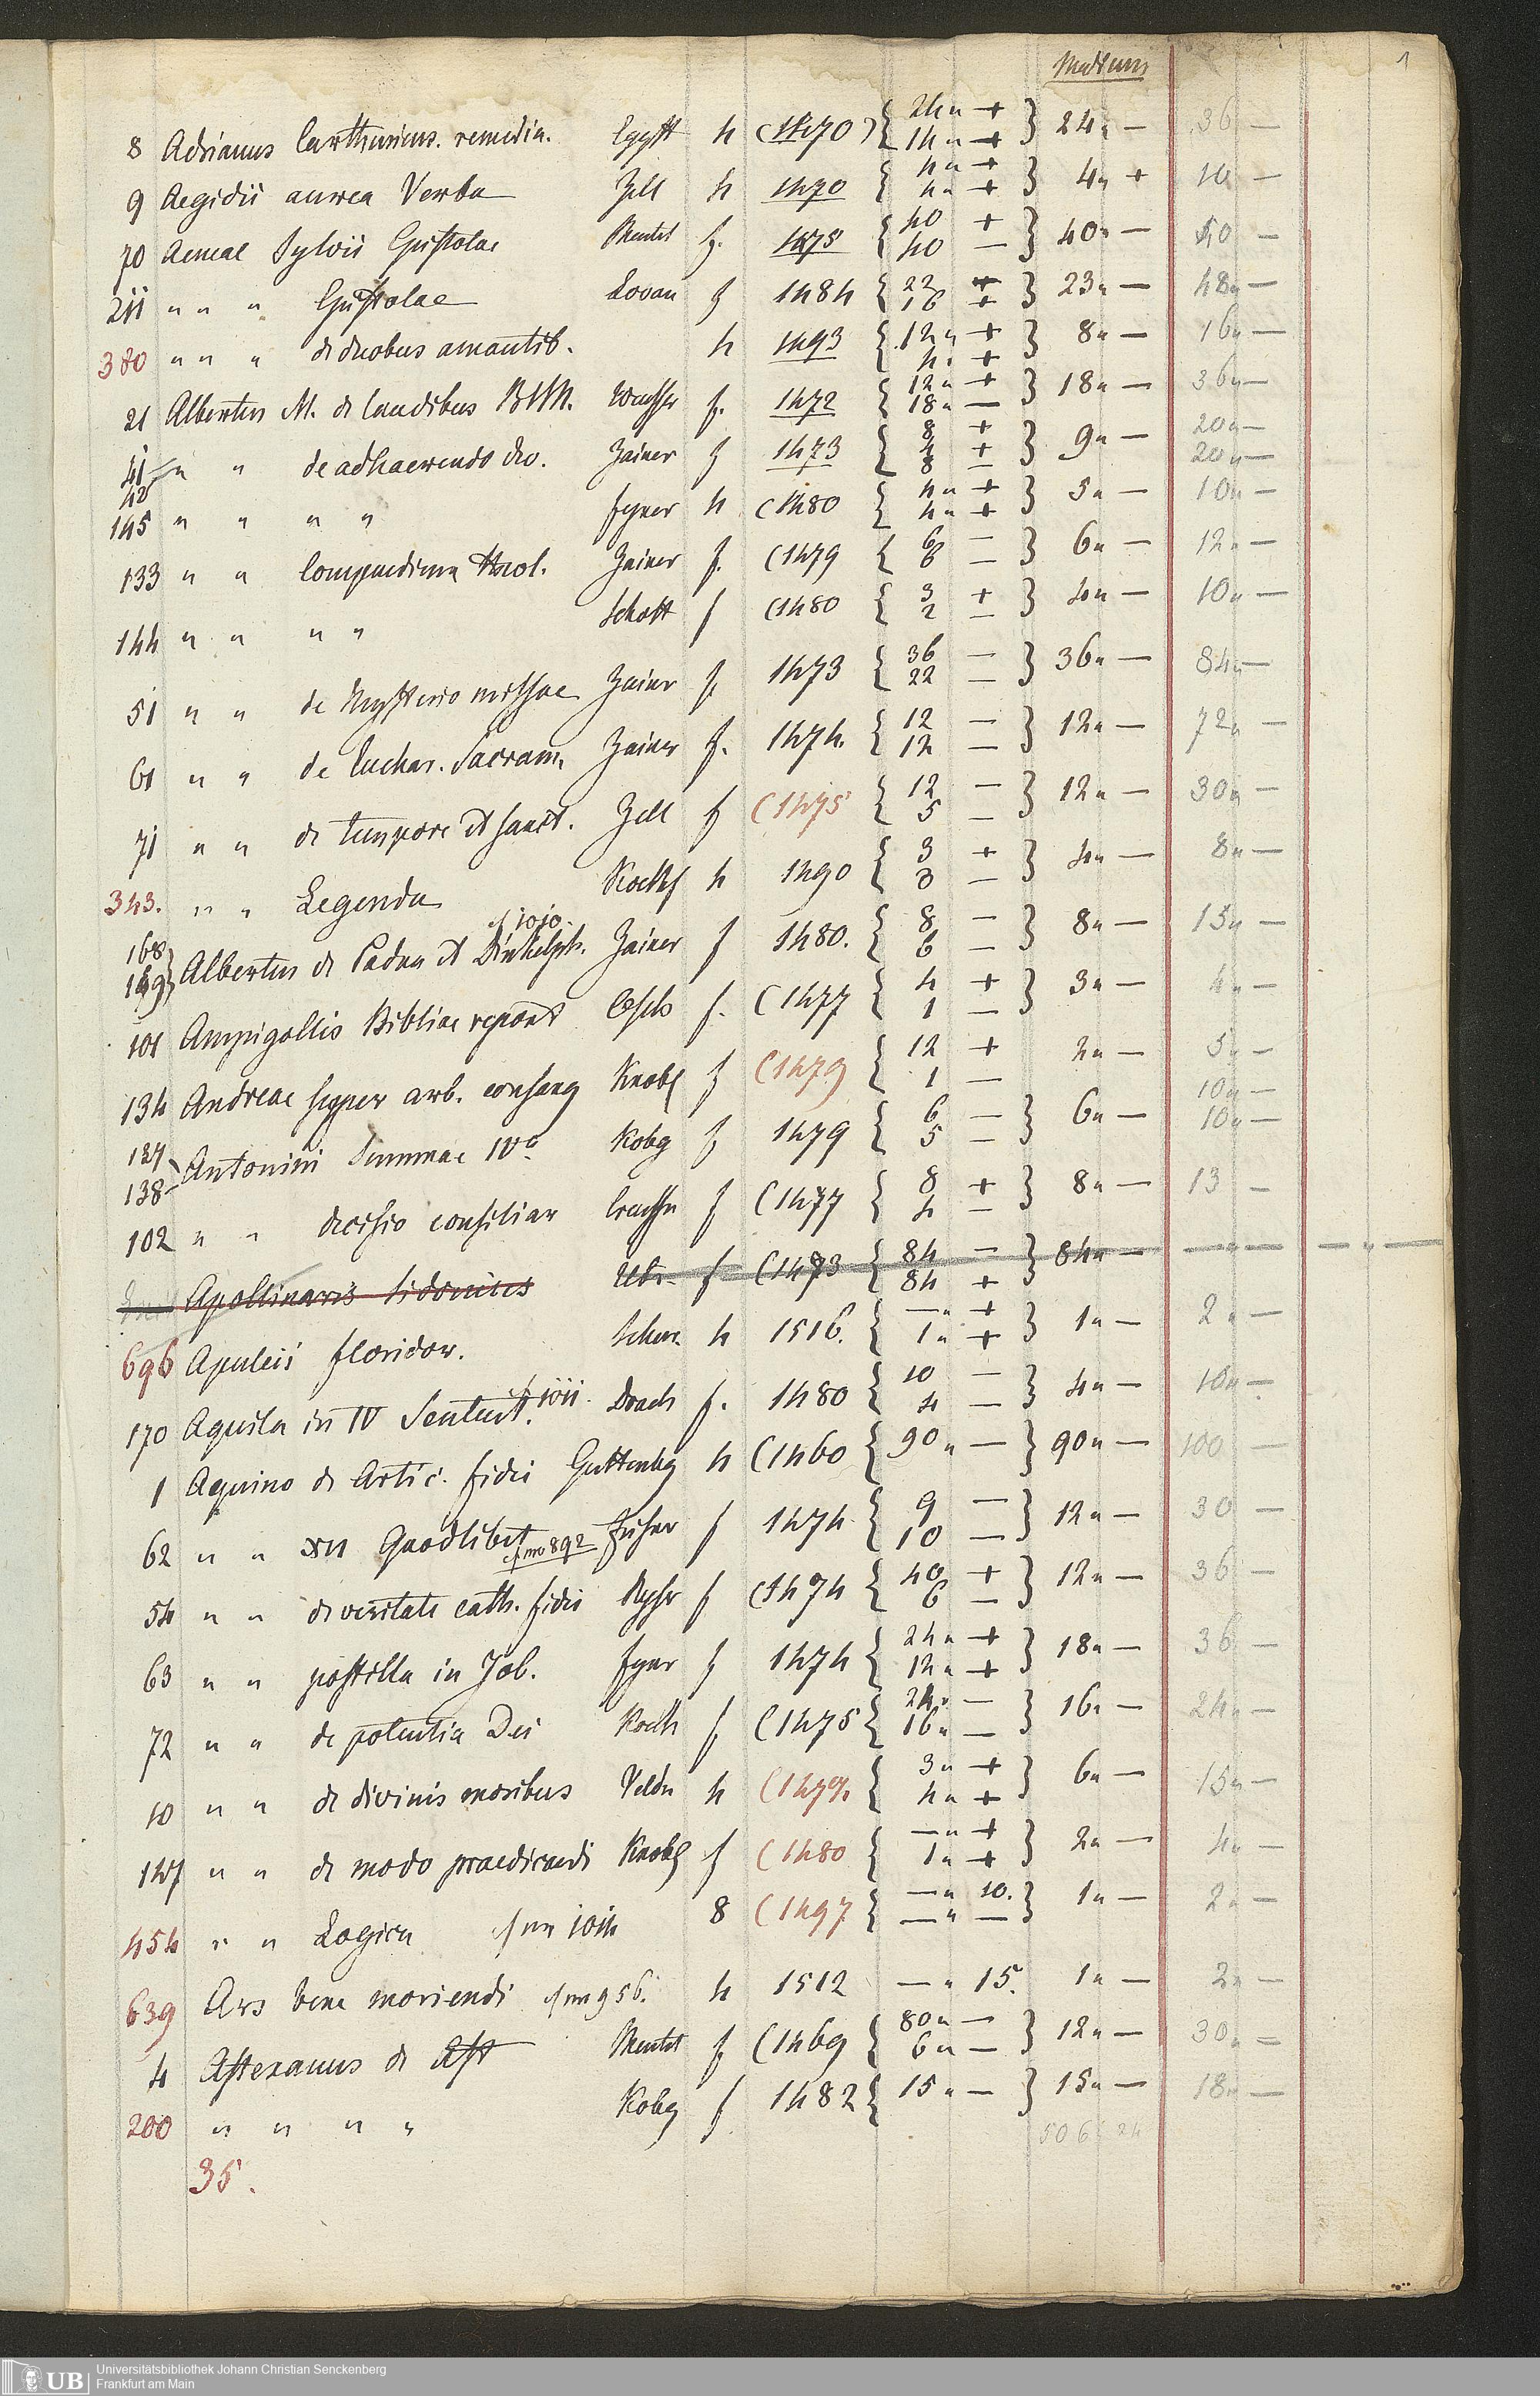 Medium
1
8 Adrianus Carthusiens. remedia. Eggst 4 (1470) { 24 " + 14 " + } 24 " — 36 —
9 Aegidii aurea Verba Zell 4 1470 { 4 " + 4 " + } 4 " + 10 —
70 Aeneae Sylvii Epistolae Mentel f. 1475 { 40 + 40 — } 40 " — 50 —
211 " " " Epistolae Lovan f 1484 { 22 + 16 + } 23 " — 48 " —
380 " " " de duobus amantib. 4 1493 { 12 " + 4 " + } 8 " — 16 " —
21 Albertus M. de laudibus BMV. f. 1472 { 12 " + 18 " — } 18 " — 36 " —
41 42 " " de adhaerendo deo. Zainer f 1473 { 8 + 4 + 8 — } 9 " — 20 " — 20 " —
145 " " " " fyner 4 (1480 { 4 " + 4 " + } 5 " — 10 " —
133 " " Compendium theol. Zainer f. (1479 { 6 — 6 — } 6 " — 12 " —
144 " " " " Schott f (1480 { 3 + 2 — } 4 " — 10 " —
51 " " de Mysterio missae Zainer f. 1473 { 36 — 22 — } 36 " — 84 " —
61 " " de Euchar. Sacram. Zainer f. 1474. { 12 — 12 — } 12 " — 72 " —
71 " " de tempore et sanct. Zell f (1475 { 12 — 5 — } 12 " — 30 " —
343. " " Legenda Koelhf 4 1490 { 3 + 3 — } 4 " — 8 " —
cf 1010.
168 169 } Albertus de Padua et Dinkelsp. Zainer f 1480. { 8 — 6 — } 8 " — 15 " —
101 Ampigollis Bibliae repert f. (1477 { 4 + 1 — } 3 " — 4 " —
134 Andreae super arb. consang Knobl f (1479 { 12 + 1 — 2 " — 5 " —
137 138 Antonini Summae IVa Kobg f 1479 { 6 — 5 — } 6 " — 10 " — 10 " —
102 " " decisio consiliar Creussn f (1477 { 8 + 4 — } 8 " — 13 —
Apollinaris Sidonius Utr. f (1473 { 84 — 84 + } 84 " — — " — — " —
696 Apuleii floridor. Schur. 4 1516. { — " + 1 " + } 1 " — 2 " —
170 Aquila in IV Sentent. cf 1011. Drach f. 1480 { 10 — 4 — } 4 " — 10 " —
1 Aquino de Artic. fidei Guttenbg 4 (1460 { 90 " — } 90 " — 100 —
62 " " XII Quodlibet cf no 892 f 1474 { 9 — 10 — } 12 " — 30 —
54 " " de veritate cath. fidei Ryser f (1474 { 40 + 6 — } 12 " — 36 —
63 " " postilla in Job. fyner f 1474 { 24 " + 12 " + } 18 " — 36 —
72 " " de potentia Dei Koelh f (1475 { 24 " — 16 " — } 16 " — 24 " —
10 " " de divinis moribus Veldn 4 (147. { 3 " + 4 " + } 6 " — 15 " —
147 " " de modo praedicandi Knobl f (1480 { — " + 1 " + } 2 " — 4 " —
454 " " Logica cf no 1014 8 (1497 { — " 10. — " — } 1 " — 2 " —
639 Ars bene moriendi cf no 956. 4 1512 — " 15. 1 " — 2 " —
4 Astexanus de Ast Mentel f (1469 { 80 " — 6 " — } 12 " — 30 " —
200 " " " " Kobg f 1482 { 15 " — } 15 " — 18 " —
506 24
35.
UB Universitätsbibliothek Johann Christian Senckenberg
Frankfurt am Main